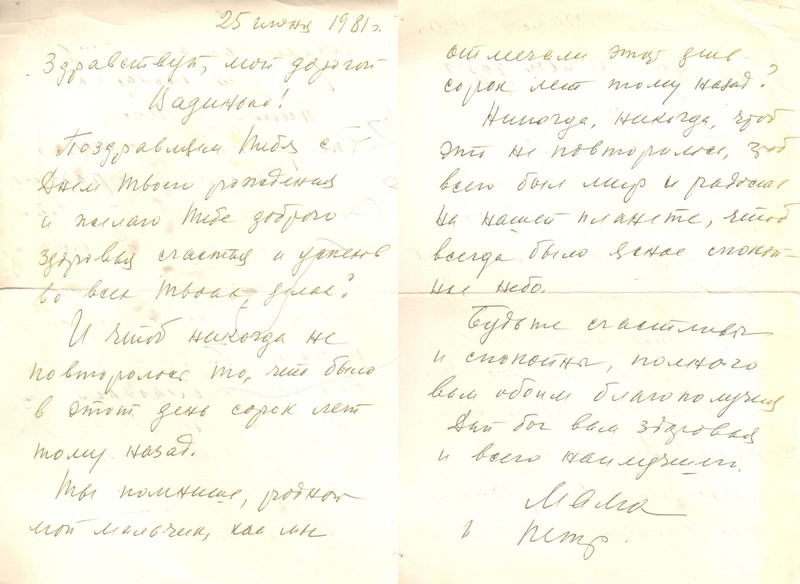 25 июня 1981 г.
Здравствуй, мой дорогой
Вадинька!
Поздравляем тебя с
Днем твоего рождения
и желаю тебе доброго
здоровья счастья и успехов
во всех твоих делах!
И чтоб никогда не
повторялось то, что было
в этот день сорок лет
тому назад.
Ты помнишь, родной
мой мальчик, как мы
отмечали этот день
сорок лет тому назад?
Никогда, никогда, чтоб
это не повторилось, чтоб
всего был мир и радость
на нашей планете, чтоб
всегда было ясное спокой-
ное небо.
Будьте счастливы
и спокойны, полного
вам обоим благополучия
Дай бог вам здоровья
и всего наилучшего.
Мама
и Петр.